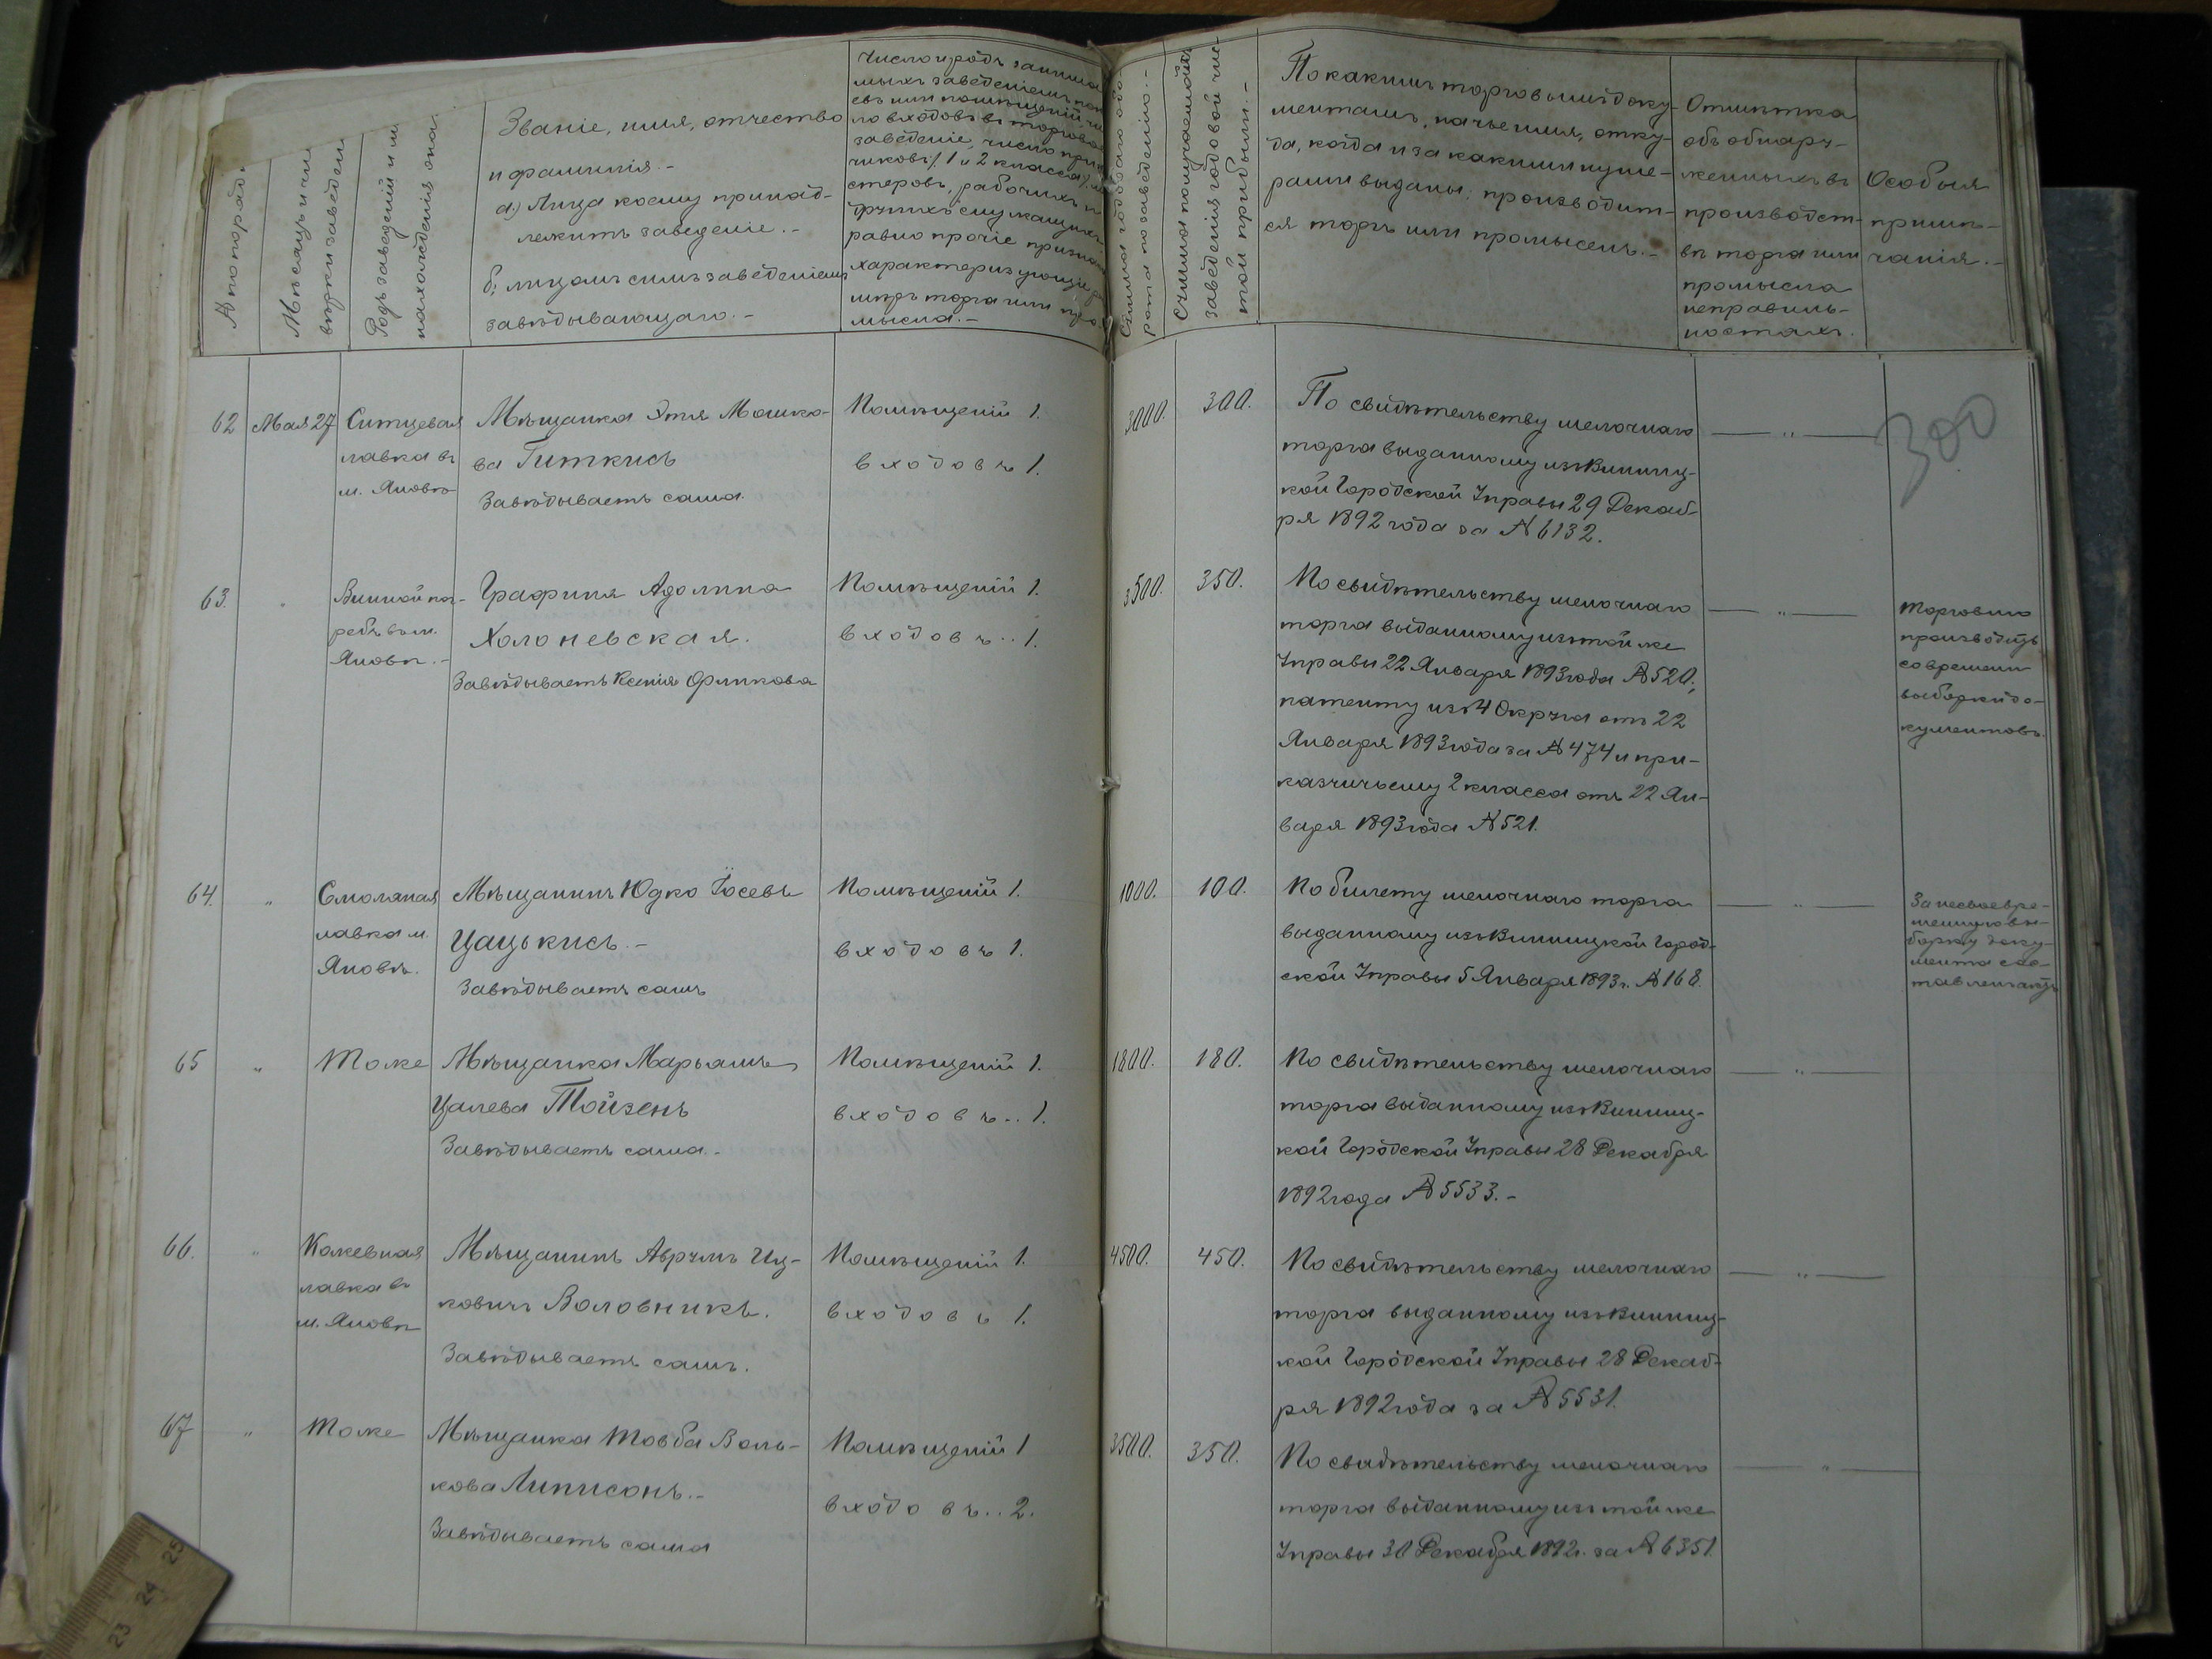 № по порядк
Мѣсяцъ и чи
вѣрки заведен
Родъ заведенія и м
нахожденія она
Званіе, имя, отчество
и фамилія.-
а) Лица коему принад-
лежитъ заведеніе.-
б, лицомъ симъ заведеніемъ
завѣдывающаго.-
Число и родъ занима
мыхъ заведеніемъ
евъ или помѣщеній
ло входовъ въ торговое
заведеніе, число прик
чиковъ 1 и 2 класса
стеровъ, рабочихъ и
другихъ служащихъ
равно прочіе признаки
характеризующіе
мѣръ торга или про
мысла.-
рота по заведенію.-
Сумма получаемой
заведенія годовой чис-
той прибыли.-
По какимъ торговымъ доку-
ментамъ, на чье имя, отку-
да, когда и за какими нуме-
рами выданы: производит-
ся торгъ или промыселъ.-
Отмѣтка
объ обнару-
женныхъ въ
производст-
вѣ торга или
промысла
неправиль-
ностяхъ.
Особыя
примѣ-
чанія.-
62
Мая 27
Ситцевая
лавка въ
м. Яновѣ
Мѣщанка Этя Мошко-
ва Гиткисъ
Завѣдываетъ сама.
Помѣщеній 1.
входовъ 1.
3000.
300.
По свидѣтельству мелочнаго
торга выданному изъ Винниц-
кой Городской Управы 29 Декаб-
ря 1892 года за № 6132.
— " —
300
63.
"
Винной по-
гребъ въ м.
Яновѣ.-
Графиня Адолина
Холоневская.
Завѣдываетъ Ксенія Орликова
Помѣщеній 1.
входовъ.. 1.
3500.
350.
По свидѣтельству мелочнаго
торга выданному изъ той же
Управы 22 Января 1893 года № 520;
патенту изъ 4 Округа отъ 22
Января 1893 года за № 474 и при-
казчичьему 2 класса отъ 22 Ян-
варя 1893 года № 521.
— " —
Торговлю
производитъ
со времени
выборки до-
кументовъ.
64.
"
Смоляная
лавка м.
Яновѣ.
Мѣщанинъ Юдко Іосевъ
Цацькисъ.-
Завѣдываетъ самъ
Помѣщеній 1.
входовъ 1.
1000.
100.
По билету мелочнаго торга
выданному изъ Винницкой Город-
ской Управы 5 Января 1893 г. № 168.
— " —
За несвоевре-
менную вы-
борку доку-
мента сос-
тавленъ актъ
65
"
Тоже
Мѣщанка Марьямъ
Цалева Тойзенъ
Завѣдываетъ сама.-
Помѣщеній 1.
входовъ.. 1.
1800.
180.
По свидѣтельству мелочнаго
торга выданному изъ Винниц-
кой Городской Управы 28 Декабря
1892 года № 5533.-
— " —
66.
"
Кожевная
лавка въ
м. Яновѣ
Мѣщанинъ Аврумъ Иц-
ковичъ Воловникъ.
Завѣдываетъ самъ.
Помѣщеній 1.
входовъ 1.
4500.
450.
По свидѣтельству мелочнаго
торга выданному изъ Винниц-
кой Городской Управы 28 Декаб-
ря 1892 года за № 5531.
— " —
67
"
Тоже
Мѣщанка Товба Воль-
кова Липисонъ.-
Завѣдываетъ сама
Помѣщеній 1
входовъ.. 2.
3500.
350.
По свидѣтельству мелочнаго
торга выданному изъ той же
Управы 30 Декабря 1892 г. за № 6351.
— " —
23 24 25